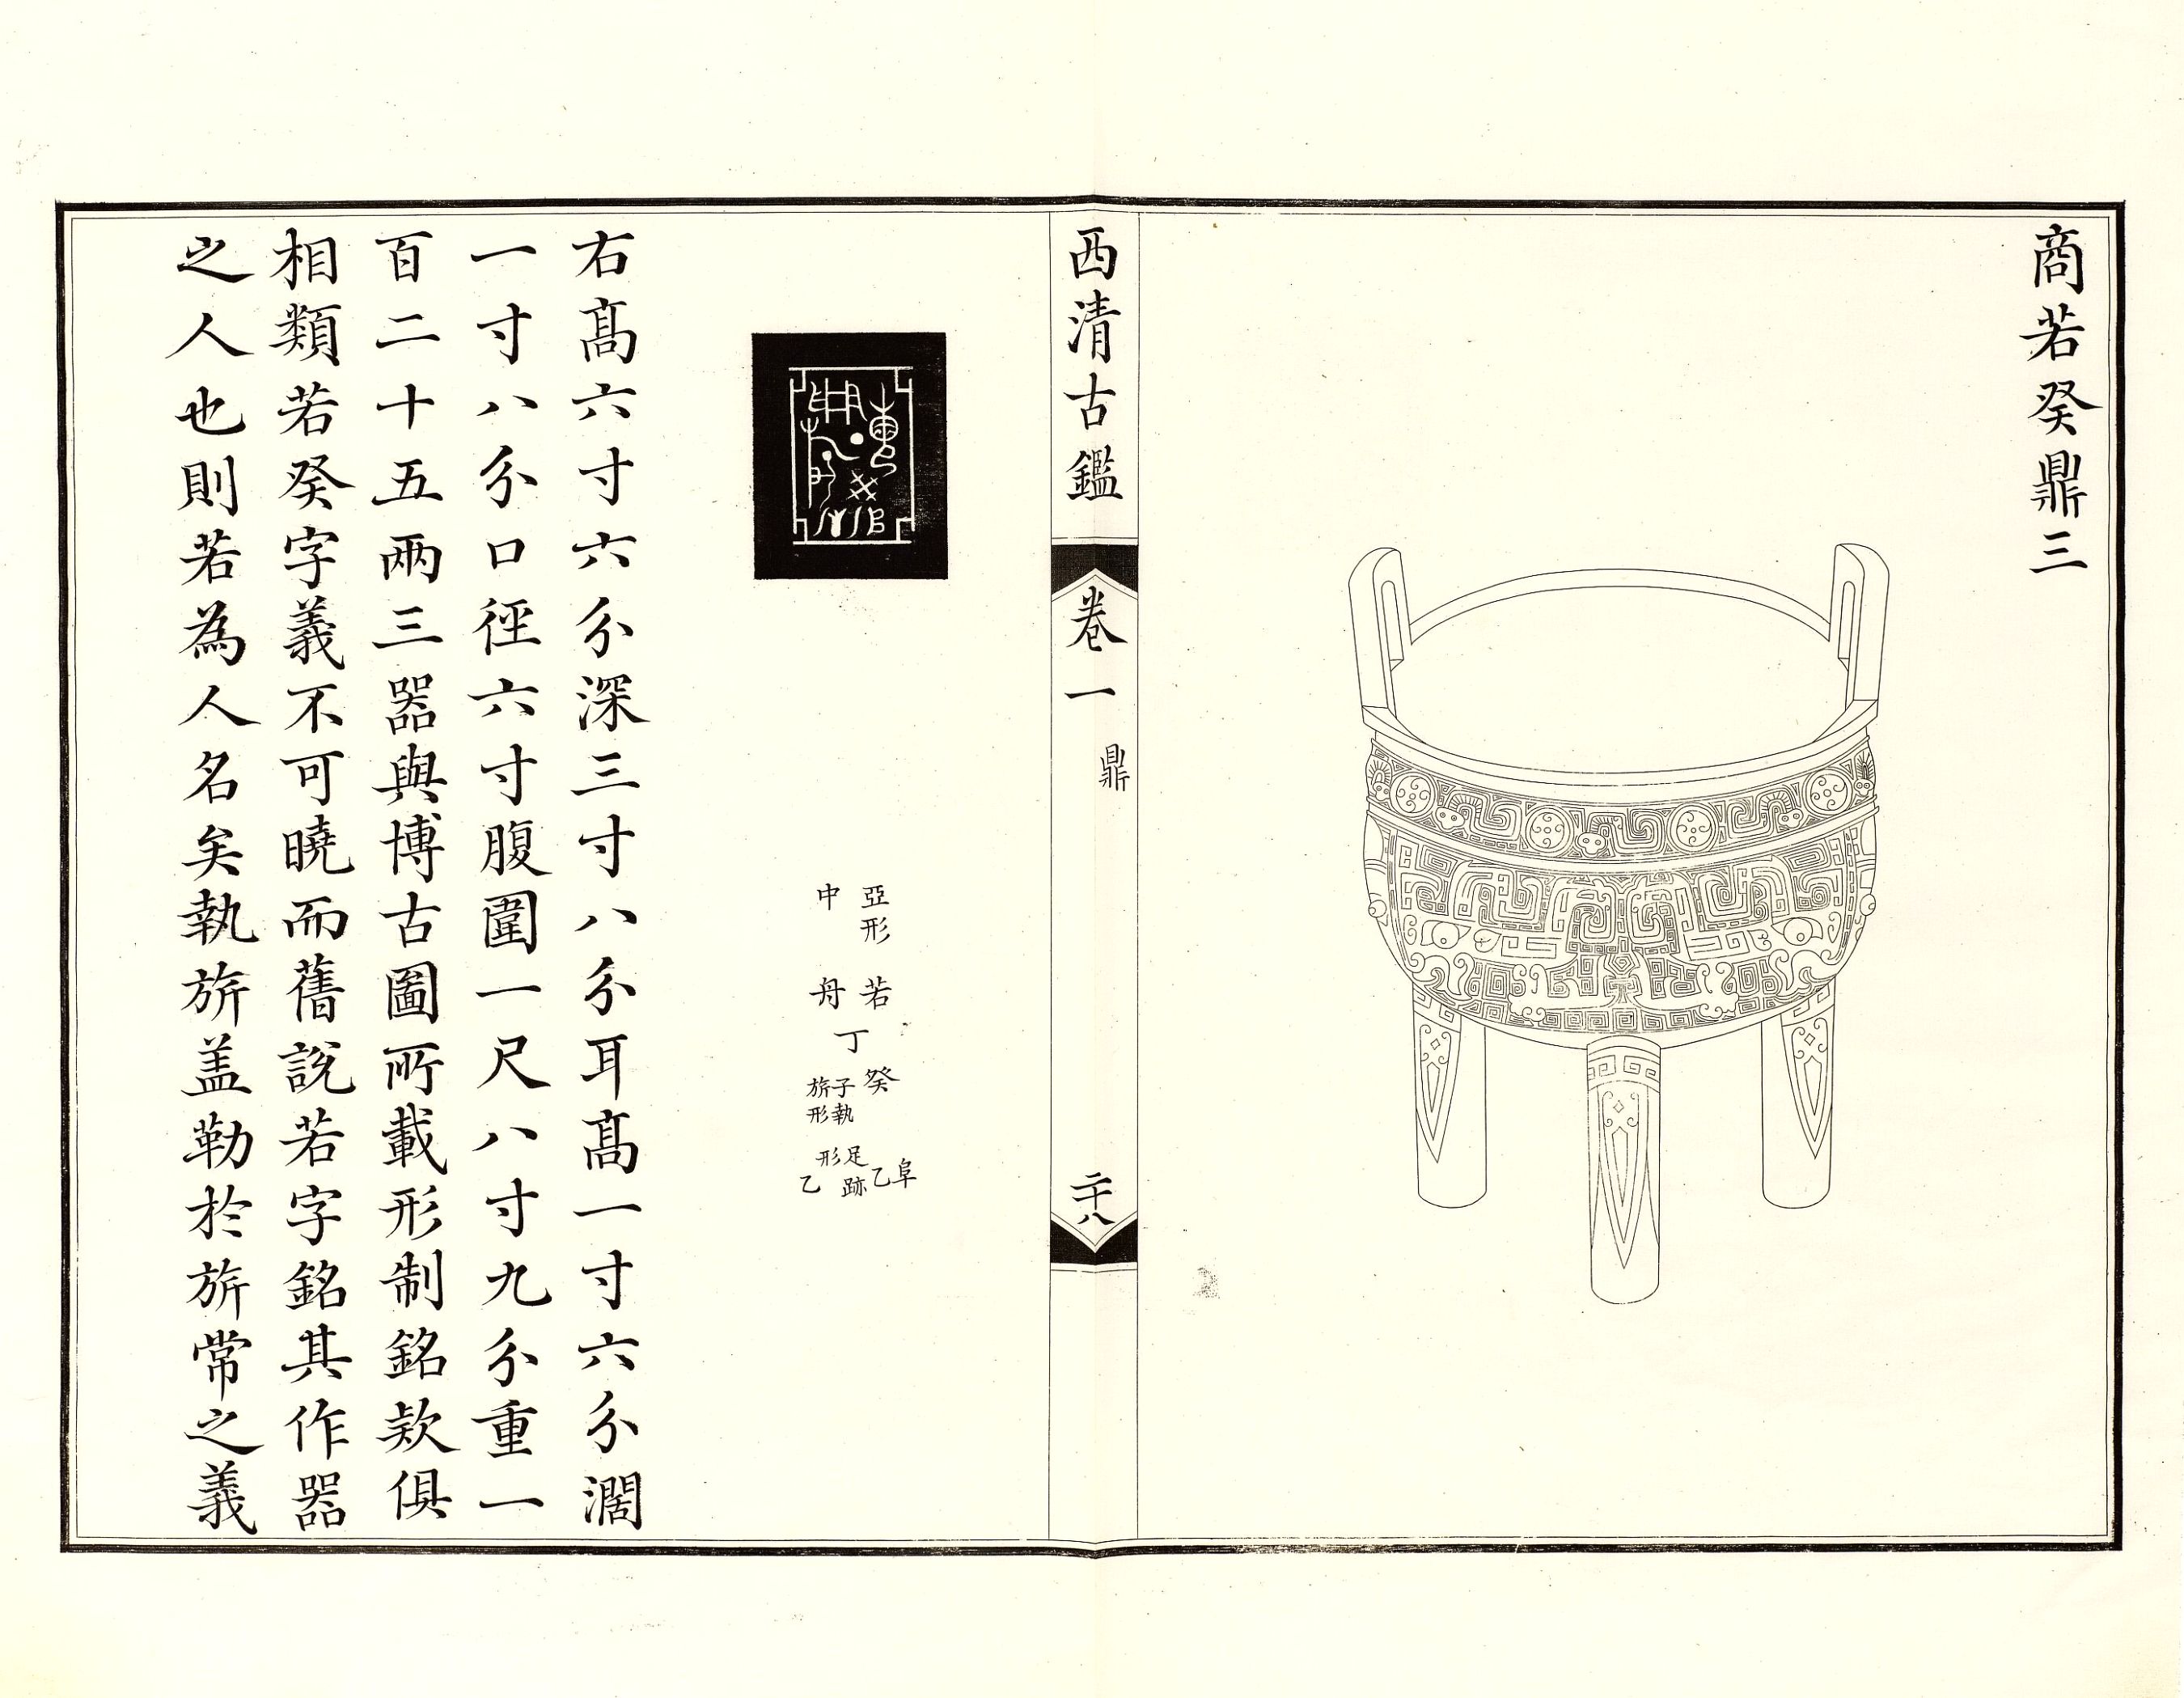 商若癸鼎三
西清古鑑
卷一
鼎
二十八
亞形 若 癸 阜
乙
丁 子執 足跡
中 舟 旂形 形
乙
右髙六寸六分深三寸八分耳髙一寸六分濶
一寸八分口徑六寸腹圍一尺八寸九分重一
百二十五兩三器與博古圖所載形制銘欵俱
相類若癸字義不可曉而舊說若字銘其作器
之人也則若為人名矣執旂盖勒於旂常之義